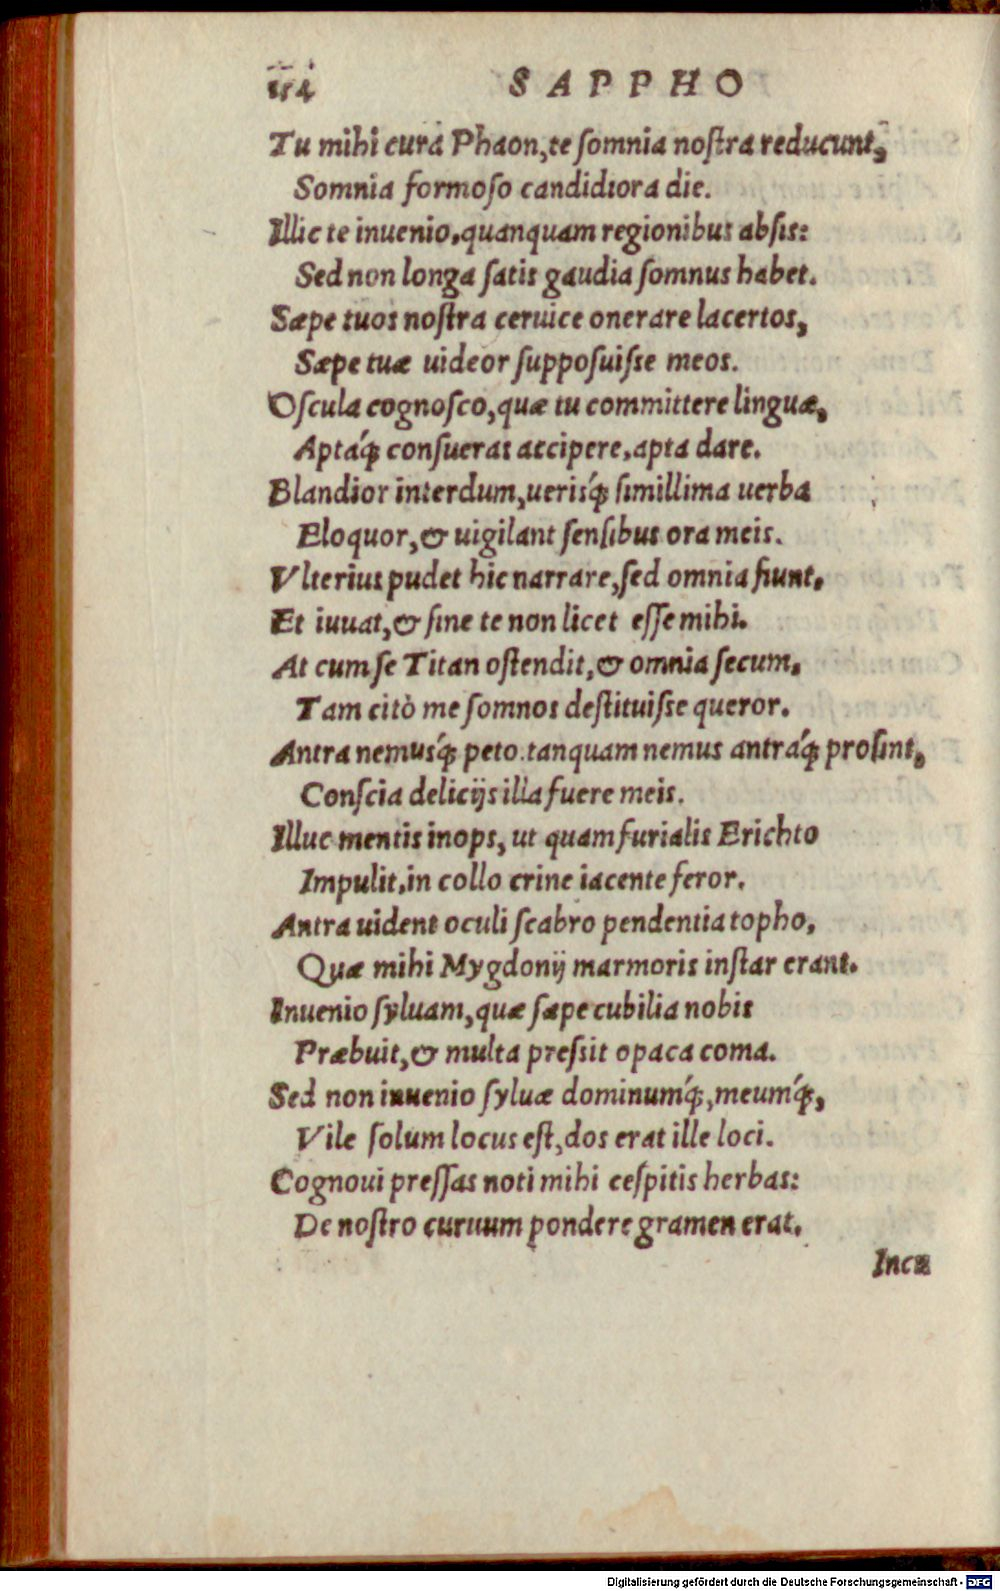 114 SAPPHO
Tu mihi cura Phaon, te ſomnia noſtra reducunt,
Somnia formoſo candidiora die.
Illic te inuenio, quanquam regionibus abſis:
Sed non longa ſatis gaudia ſomnus habet.
Sæpe tuos noſtra ceruice onerare lacertos,
Sæpe tuæ uideor ſuppoſuiſſe meos.
Oſcula cognoſco, quæ tu committere linguæ,
Aptáq́; conſueras accipere, apta dare.
Blandior interdum, uerisq́; ſimillima uerba
Eloquor, & uigilant ſenſibus ora meis.
Vlterius pudet hic narrare, ſed omnia fiunt,
Et iuuat, & ſine te non licet eſſe mihi.
At cum ſe Titan oſtendit, & omnia ſecum,
Tam citò me ſomnos deſtituiſſe queror.
Antra nemusq́; peto. tanquam nemus antráq́; proſint,
Conſcia delicijs illa fuere meis.
Illuc mentis inops, ut quam furialis Erichto
Impulit, in collo crine iacente feror.
Antra uident oculi ſcabro pendentia topho,
Quæ mihi Mygdonij marmoris inſtar erant.
Inuenio ſyluam, quæ ſæpe cubilia nobis
Præbuit, & multa preſsit opaca coma.
Sed non inuenio ſyluæ dominumq́;, meumq́;,
Vile ſolum locus eſt, dos erat ille loci.
Cognoui preſſas noti mihi ceſpitis herbas:
De noſtro curuum pondere gramen erat.
Incu
Digitalisierung gefördert durch die Deutsche Forschungsgemeinschaft - DFG